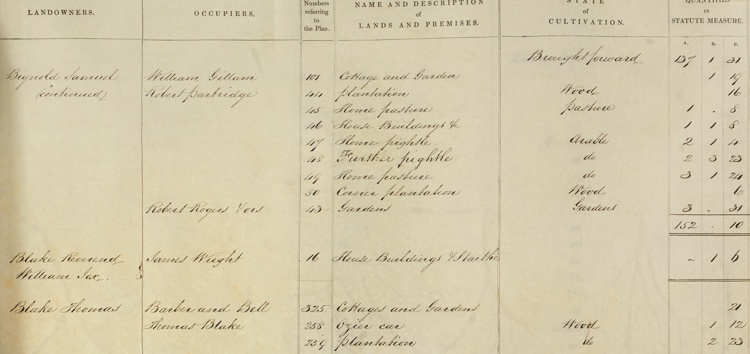 LANDOWNERS. OCCUPIERS. Numbers referring to the Plan. NAME AND DESCRIPTION of LANDS AND PREMISES. STATE of CULTIVATION. QUANTITIES in STATUTE MEASURE.
A. R. P.
Brought forward 137 1 31
Bignold Samuel William Gillam 101 Cottage and Garden 1 19
(continued) Robert Partridge 44 Plantation Wood 16
45 Home pasture Pasture 1 . 8
46 House Buildings & 1 1 8
47 Home pightle Arable 2 1 4
48 Further pightle do 2 3 23
49 Home pasture do 3 1 24
50 Corner plantation Wood 6
Robert Rogers Vors 43 Gardens Gardens 3 . 31
152 . 10
Blake Reverend James Wright 16 House Buildings & Staithe - 1 6
William Jex
Blake Thomas Barber and Bell 325 Cottages and Gardens 21
Thomas Blake 258 Ozier car Wood 1 12
259 Plantation do 2 23